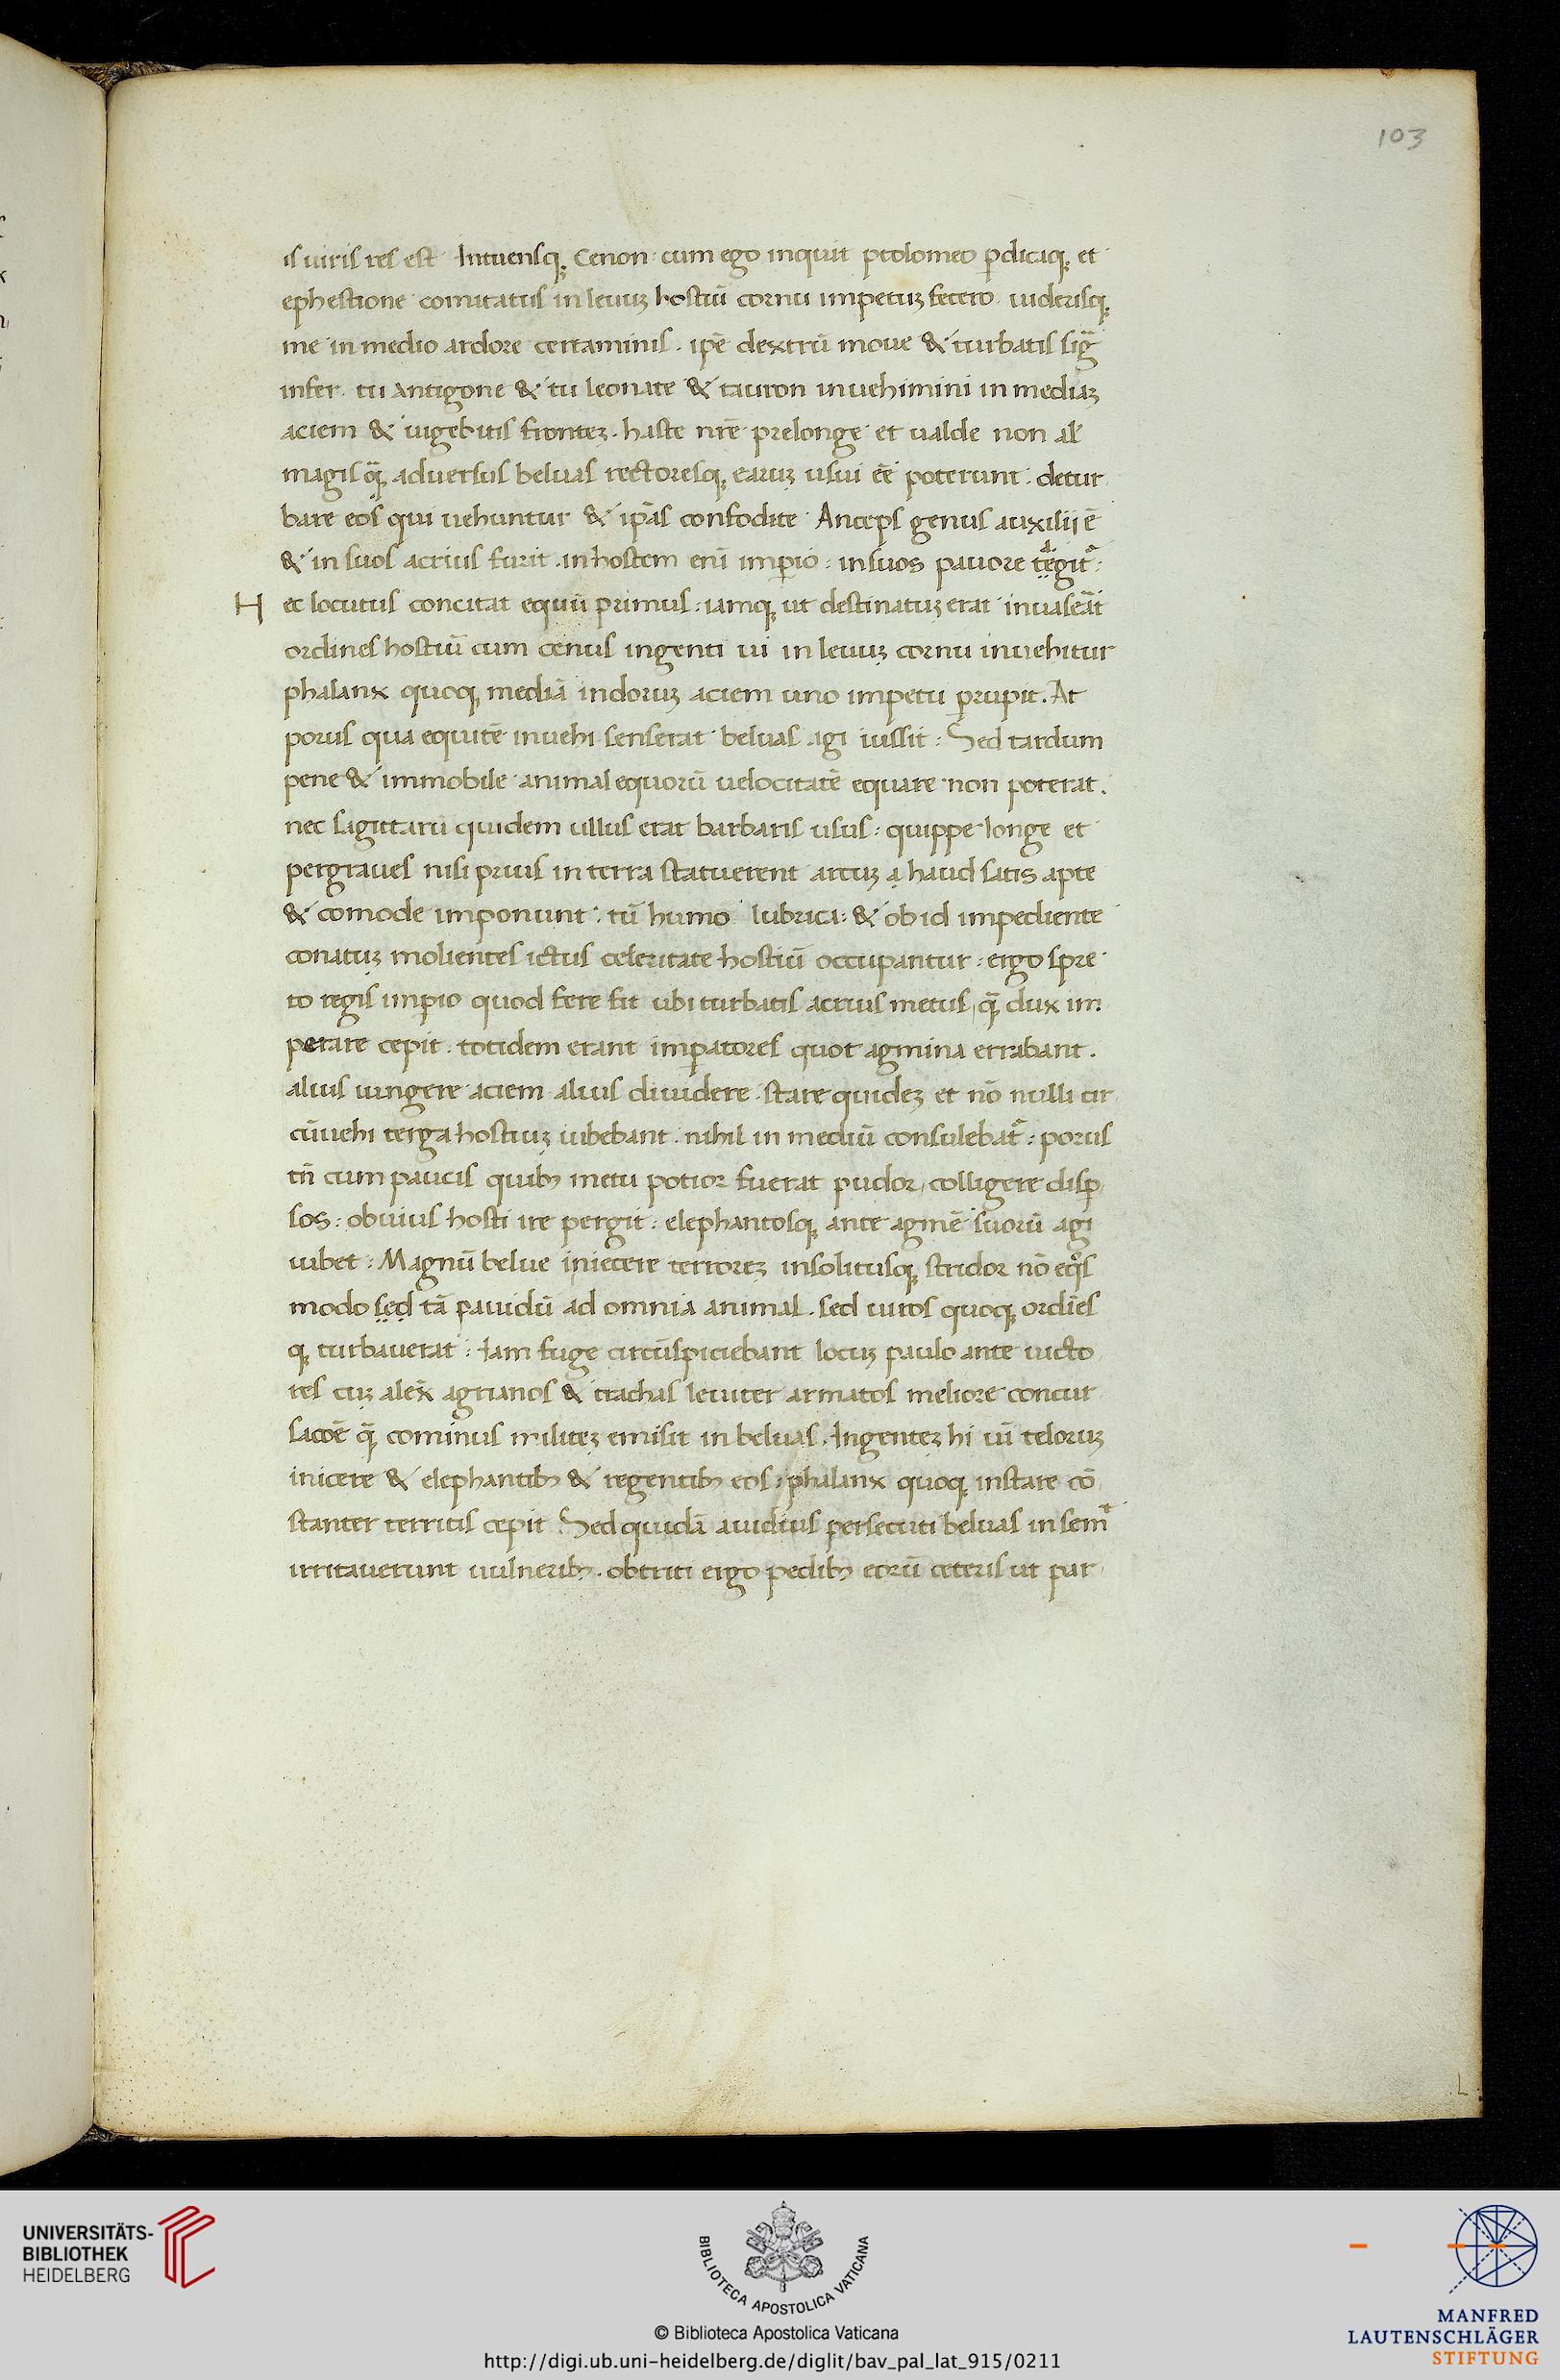 103
is uiris res est Intuensq; Cenon cum ego inquit ptolomeo p̱dicaq; et
ephestione comitatus in leuuȝ hostiū cornu impetuȝ fecero uiderisq;
me in medio ardore certaminis . ipē dextrū moue & turbatis sig̅
infer . tu Antigone & tu leonate & tauron inuehimini in mediaȝ
aciem & urgebitis fronteȝ . haste nr̄e prelonge et ualde non al̄
magis q̄ꝫ aduersus beluas rectoresq; earuȝ usui ēe poterunt . detur
bare eos qui uehuntur & ip̄as confodite . Anceps genus auxilij ē
& in suos acrius furit . in hostem enī imꝑio : in suos pauore
H ec locutus concitat equū primus : iamq; ut destinatuȝ erat inuaserāt
ordines hostiū cum cenus ingenti ui in leuuȝ cornu inuehitur
phalanx quoq; mediā indoruȝ aciem uno impetu ꝑrupit . At
porus qua equitē inuehi senserat beluas agi iussit : Sed tardum
pene & immobile animal equorū uelocitatē equare non poterat .
nec sagittarū quidem ullus erat barbaris usus : quippe longe et
pergraues nisi prius in terra statuerent arcuȝ a haud satis apte
& comode imponunt . tū humo lubrica : & ob id impediente
conatuȝ molientes ictus celeritate hostiū occupantur : ergo spre
to regis imꝑio quod fere fit ubi turbatis acrius metus q̄ꝫ dux im
perare cepit : totidem erant imꝑatores quot agmina errabant .
alius iungere aciem alius diuidere . stare quideȝ et nō nulli cir
cūuehi terga hostiuȝ iubebant . nihil in mediū consulebat᷑ : porus
tn̄ cum paucis quibꝫ metu potior fuerat pudor colligere disꝑ
sos : obuius hosti ire pergit : elephantosq; ante agmē suorū agi
iubet : Magnū belue iniecere terroreȝ insolitusq; stridor nō eqͦs
modo sed tā pauidū ad omnia animal . sed uiros quoq; ordīes
q; turbauerat : Iam fuge circūspiciebant locuȝ paulo ante uicto
res cuȝ alex̄ agrianos & trachas leuiter armatos meliore concur
sacōe q̄ꝫ cominus militeȝ emisit in beluas . Ingenteȝ hi uī teloruȝ
inicere & elephantibꝫ & regentibꝫ eos : phalanx quoq; instare cō
stanter territis cepit . Sed quidā auidius persecuti beluas in sem̄
irritauerunt uulneribꝫ . obtriti ergo pedibꝫ eorū ceteris ut par
UNIVERSITÄTS-
BIBLIOTHEK
HEIDELBERG
BIBLIOTECA APOSTOLICA VATICANA
© Biblioteca Apostolica Vaticana
http://digi.ub.uni-heidelberg.de/diglit/bav_pal_lat_915/0211
MANFRED
LAUTENSCHLÄGER
STIFTUNG